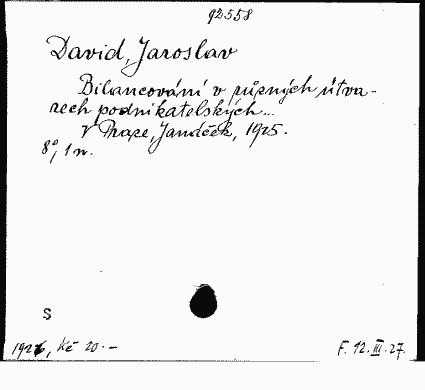 92558
David, Jaroslav
Bilancování v různých útva-
rech podnikatelských...
V Praze, Janáček, 1925.
8°, 1 n.
S
1926, Kč 20.- F. 12.III.27.